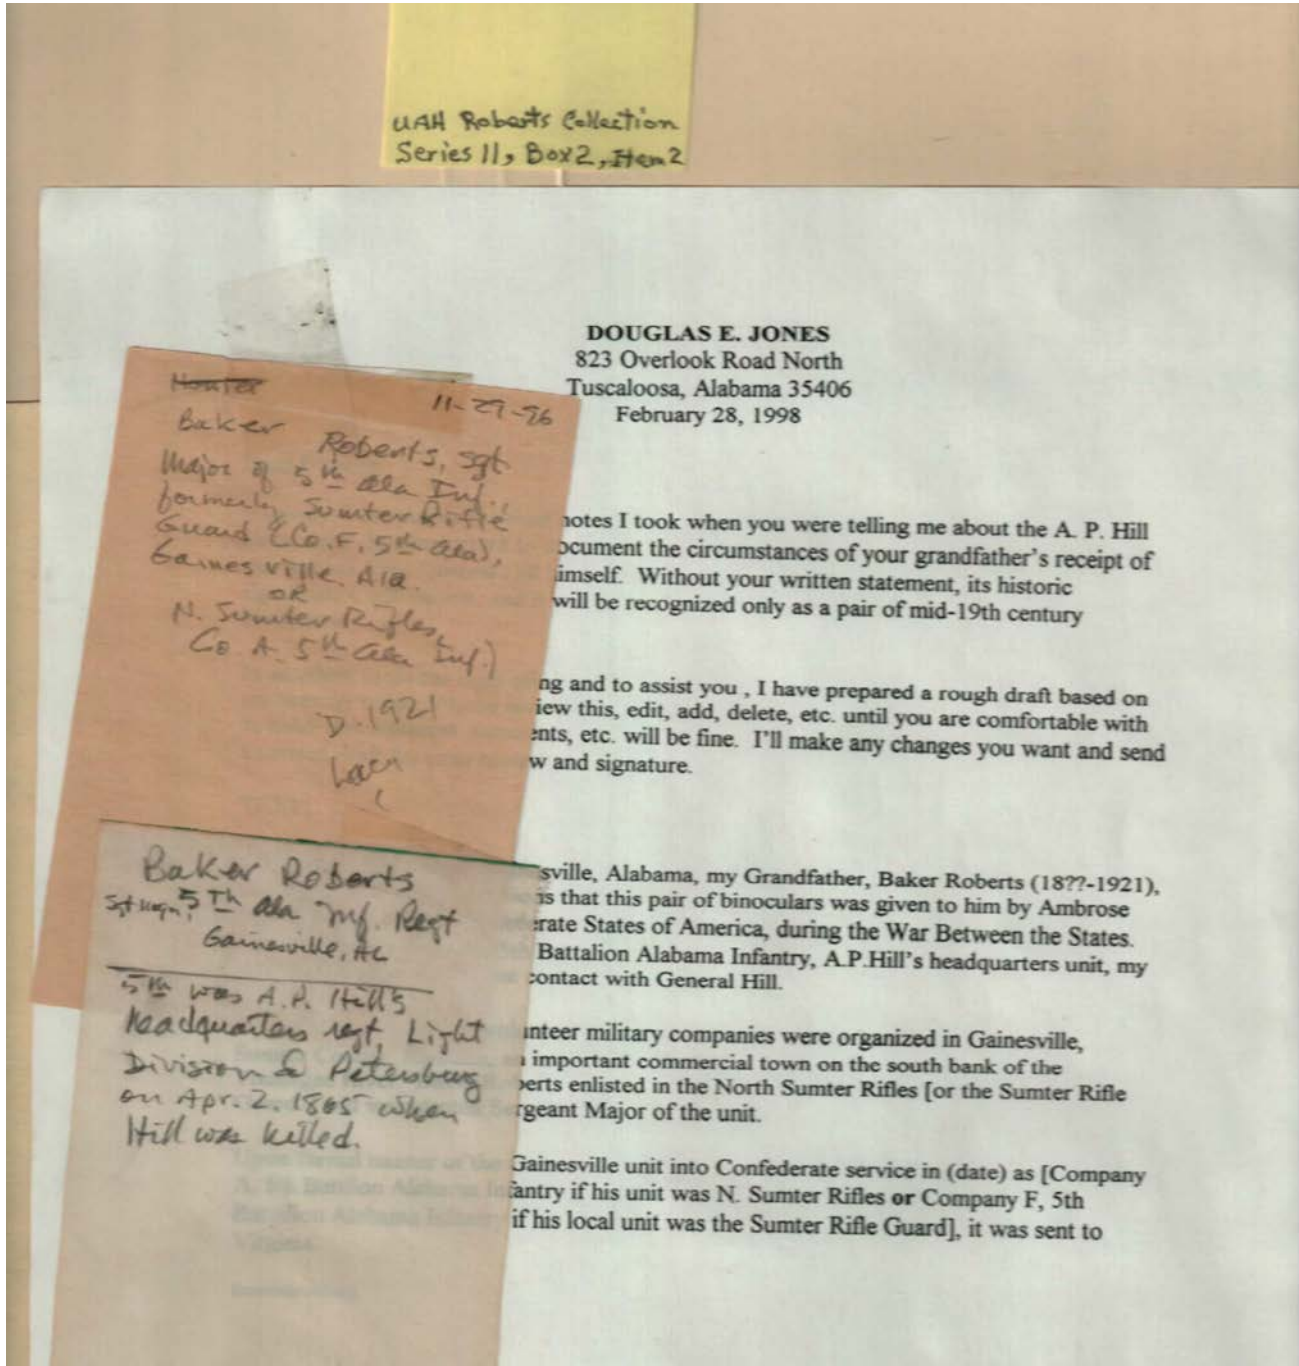 UAH Roberts Collection
Series 11, Box 2, Item 2
DOUGLAS E. JONES
823 Overlook Road North
Tuscaloosa, Alabama 35406
February 28, 1998
11-29-96
Baker Roberts, sgt
Major of 5th Ala Inf.,
formerly Sumter Rifle
Guard (Co. F, 5th Ala),
Gainesville Ala.
OR
N. Sumter Rifles,
Co A. 5th Ala Inf.)
D. 1921
Baker Roberts
5Th Ala Inf. Regt
Gainesville, AL
5th was A.P. Hill's
headquarters regt, Light
Division @ Petersburg
on Apr. 2, 1865 when
Hill was killed.
notes I took when you were telling me about the A. P. Hill
ocument the circumstances of your grandfather's receipt of
imself. Without your written statement, its historic
will be recognized only as a pair of mid-19th century
ng and to assist you , I have prepared a rough draft based on
iew this, edit, add, delete, etc. until you are comfortable with
ents, etc. will be fine. I'll make any changes you want and send
w and signature.
sville, Alabama, my Grandfather, Baker Roberts (18??-1921),
is that this pair of binoculars was given to him by Ambrose
erate States of America, during the War Between the States.
Battalion Alabama Infantry, A.P.Hill's headquarters unit, my
contact with General Hill.
unteer military companies were organized in Gainesville,
important commercial town on the south bank of the
berts enlisted in the North Sumter Rifles [or the Sumter Rifle
rgeant Major of the unit.
Gainesville unit into Confederate service in (date) as [Company
fantry if his unit was N. Sumter Rifles or Company F, 5th
if his local unit was the Sumter Rifle Guard], it was sent to